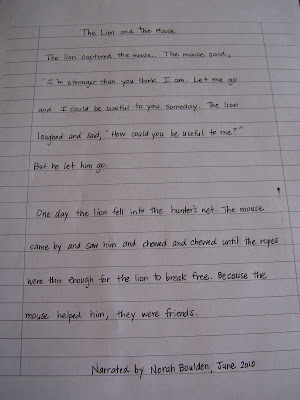 The Lion and the Mouse
The lion captured the mouse. The mouse said,
"I'm stronger than you think I am. Let me go
and I could be useful to you someday. The lion
laughed and said, "How could you be useful to me?"
But he let him go.
One day the lion fell into the hunter's net. The mouse
came by and saw him and chewed and chewed until the ropes
were thin enough for the lion to break free. Because the
mouse helped him, they were friends.
Narrated by Norah Boulden, June 2010